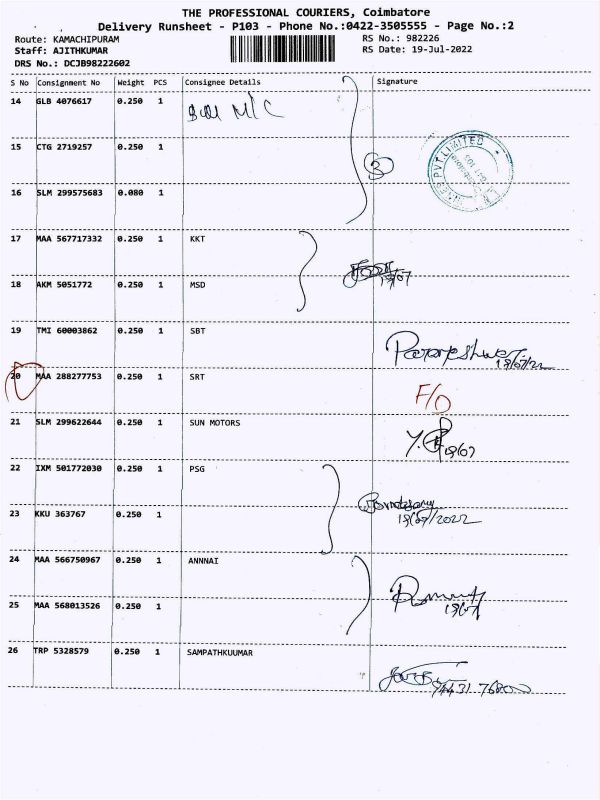 THE PROFESSIONAL COURIERS, Coimbatore
Delivery Runsheet - P103 - Phone No.:0422-3505555 - Page No.:2
Route: KAMACHIPURAM RS No.: 982226
Staff: AJITHKUMAR RS Date: 19-Jul-2022
DRS No.: DCJB98222602
S No Consignment No Weight PCS Consignee Details Signature
14 GLB 4076617 0.250 1 M/C
15 CTG 2719257 0.250 1 3 PVT.LIMITED
16 SLM 299575683 0.080 1
17 MAA 567717332 0.250 1 KKT
18 AKM 5051772 0.250 1 MSD 19/07
19 TMI 60003862 0.250 1 SBT
19/07/22
20 MAA 288277753 0.250 1 SRT F/O
21 SLM 299622644 0.250 1 SUN MOTORS 19/07
22 IXM 501772030 0.250 1 PSG
23 KKU 363767 0.250 1 19/07/2022
24 MAA 566750967 0.250 1 ANNNAI
25 MAA 568013526 0.250 1 19/07
26 TRP 5328579 0.250 1 SAMPATHKUUMAR